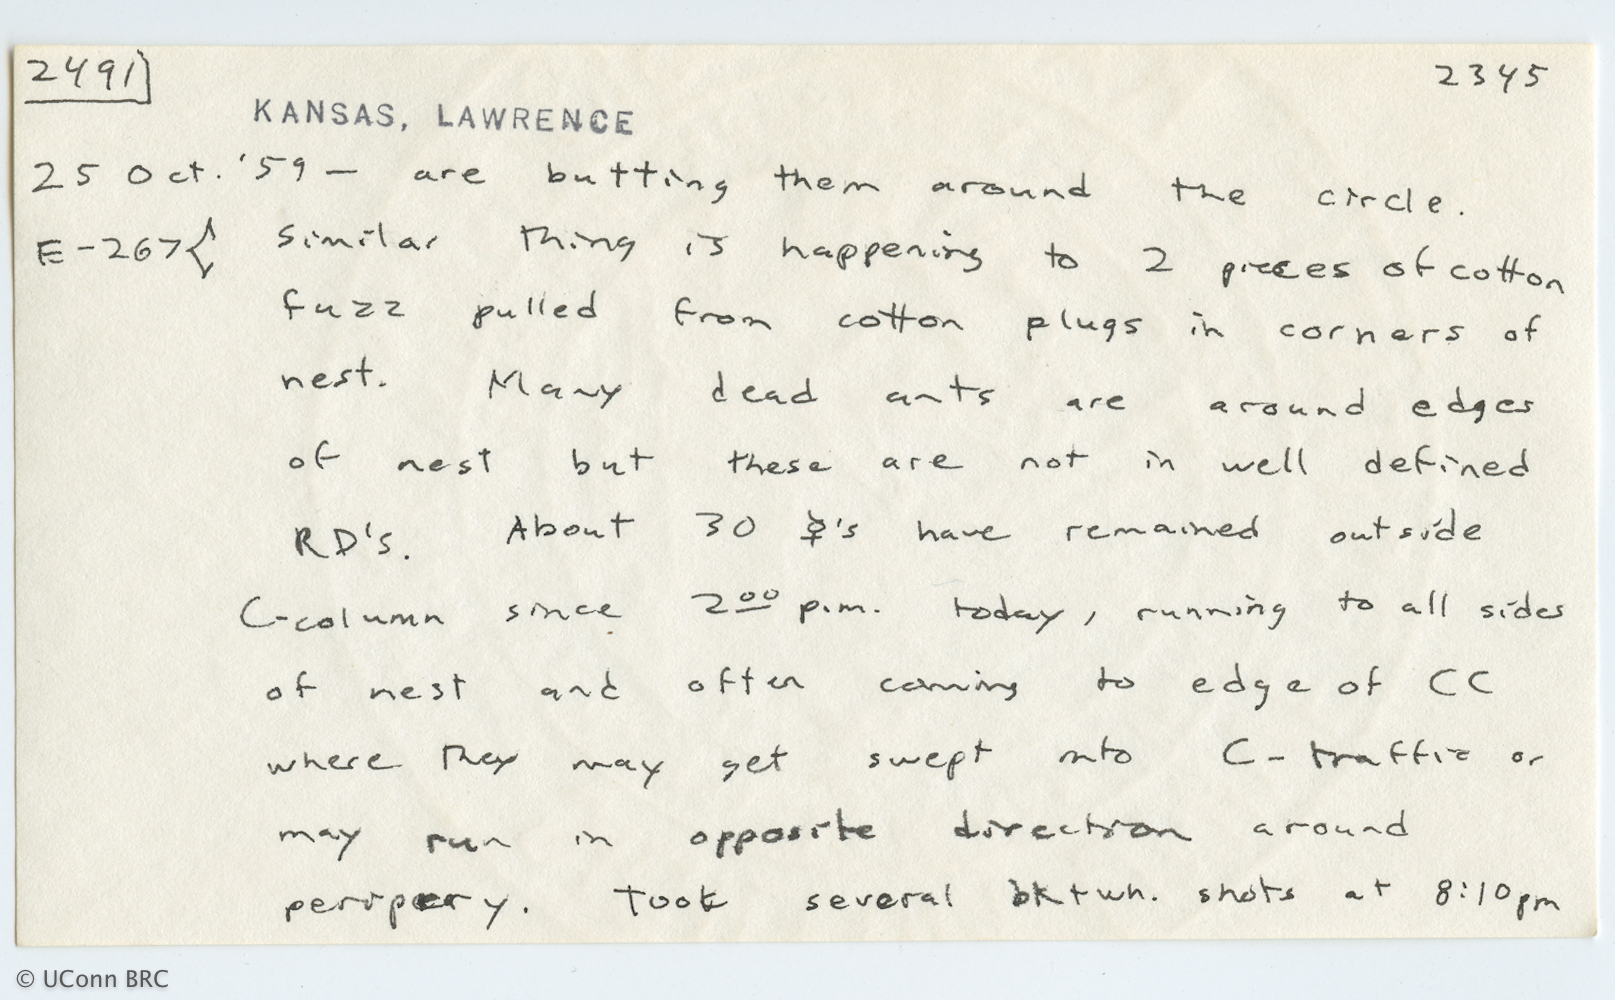 2491] 2345
KANSAS, LAWRENCE
25 Oct. '59 — are butting them around the circle.
E-267{ Similar thing is happening to 2 pieces of cotton
fuzz pulled from cotton plugs in corners of
nest. Many dead ants are around edges
of nest but these are not in well defined
RD's. About 30 ☿'s have remained outside
C-column since 2⁰⁰ p.m. today, running to all sides
of nest and often coming to edge of CC
where they may get swept into C-traffic or
may run in opposite direction around
perippery. Took several bk+wh. shots at 8:10pm
© UConn BRC